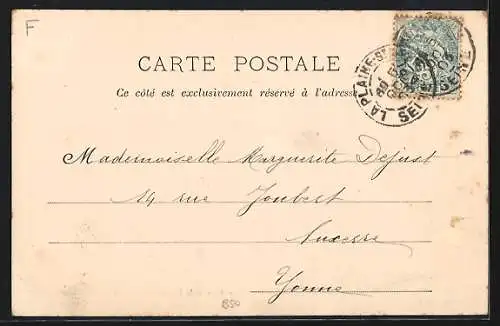 F
CARTE POSTALE
Ce côté est exclusivement réservé à l'adresse
LA PLAINE-St
SEINE
Mademoiselle Marguerite Dejust
14 rue Joubert
Auxerre
Yonne
850